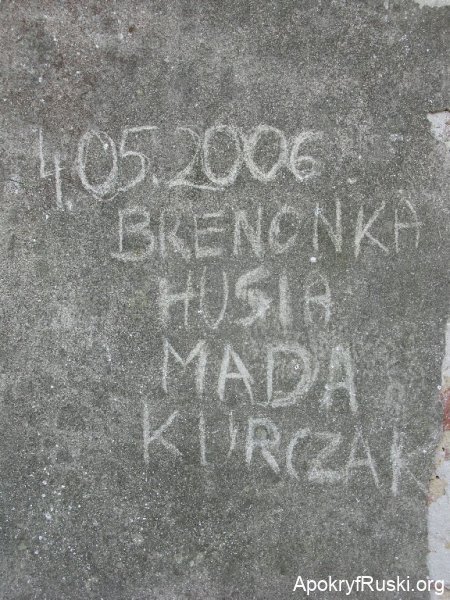 4.05.2006
BRENONKA
HUSIA
MADA
KURCZAK
ApokryfRuski.org